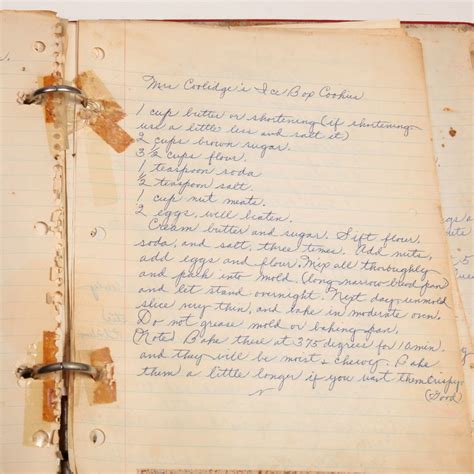 Mrs Coolidge's Ice Box Cookies
1 cup butter or shortening (if shortening
use a little less and salt it)
2 cups brown sugar.
3½ cups flour.
1 teaspoon soda
½ teaspoon salt.
1 cup nut meats.
2 eggs well beaten.
Cream butter and sugar. Sift flour,
soda, and salt, three times. Add nuts,
add eggs and flour. Mix all thoroughly
and pack into mold (long narrow bread pan
and let stand overnight. Next day, unmold
slice very thin, and bake in moderate oven.
Do not grease mold or baking pan.
(Note) Bake these at 375 degrees for 10 min.
and they will be moist & chewy. Bake
them a little longer if you want them crispy
(Good)